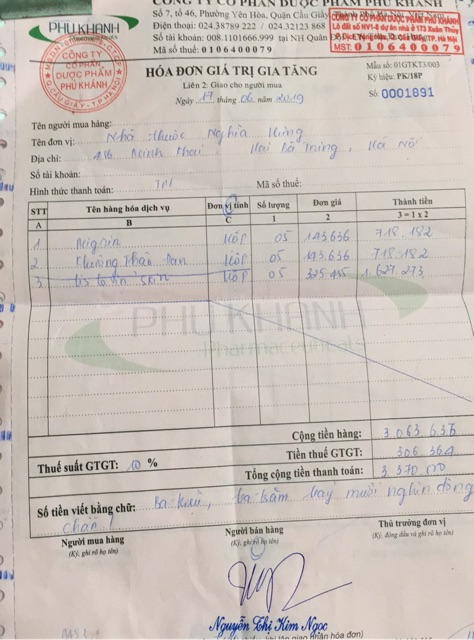 CÔNG TY CỔ PHẦN DƯỢC PHẨM PHÚ KHÁNH
Số 7, tổ 46, Phường Yên Hòa, Quận Cầu Giấy
Điện thoại: 024.38789 222 / 024.32123 868
Số tài khoản: 008.1101666.999 tại NH Quân
Mã số thuế: 0106400079
CÔNG TY CỔ PHẦN DƯỢC PHẨM PHÚ KHÁNH
MST: 0106400079
PHU KHANH
CÔNG TY
CỔ PHẦN
DƯỢC PHẨM
PHÚ KHÁNH
HÓA ĐƠN GIÁ TRỊ GIA TĂNG
Liên 2: Giao cho người mua
Ngày 17 tháng 06 năm 2019
Mẫu số: 01GTKT3/003
Ký hiệu: PK/18P
Số: 0001891
Tên người mua hàng:
Tên đơn vị: Nhà thuốc Nghĩa Hưng
Địa chỉ: Minh Khai, Hai Bà Trưng, Hà Nội
Số tài khoản:
Hình thức thanh toán: TM Mã số thuế:
STT Tên hàng hóa dịch vụ Đơn vị tính Số lượng Đơn giá Thành tiền
A B C 1 2 3 = 1 x 2
1 Hộp 05 143.636 718.182
2 Khương Thảo Đan Hộp 05 143.636 718.182
3 skin Hộp 05 325.455 1.627.273
PHU KHANH
Pharmaceuticals
Cộng tiền hàng: 3.063.636
Thuế suất GTGT: 10 % Tiền thuế GTGT: 306.364
Tổng cộng tiền thanh toán: 3.370.000
Số tiền viết bằng chữ: Ba triệu, ba trăm bảy mươi nghìn đồng
chẵn
Người mua hàng Người bán hàng Thủ trưởng đơn vị
(Ký, ghi rõ họ tên) (Ký, ghi rõ họ tên) (Ký, đóng dấu và ghi rõ họ tên)
Nguyễn Thị Kim Ngọc